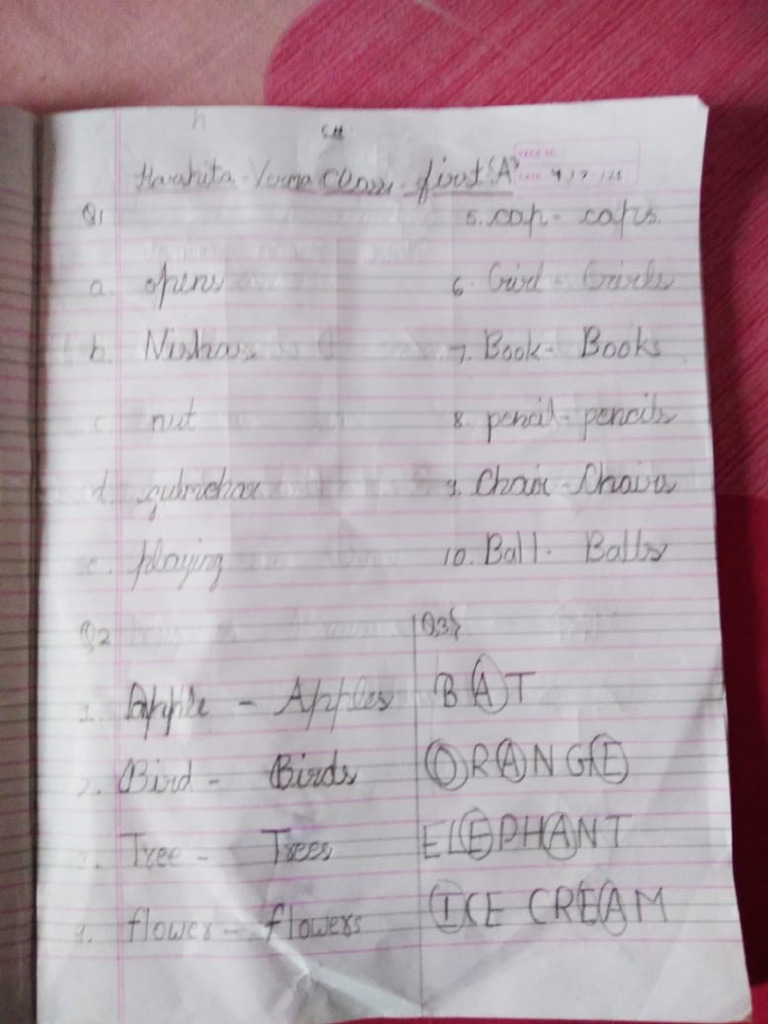 Harshita - Verma Class - first 'A'
Q1
a. opens
b. Nishas
c. nut
d. gulmohar
e. playing
5. cap - caps.
6. Girl - Girls
7. Book - Books
8. pencil - pencils
9. Chair - Chairs
10. Ball - Balls
Q2
1. Apple - Apples
2. Bird - Birds
3. Tree - Trees
4. flower - flowers
Q3}
BAT
ORANGE
ELEPHANT
ICE CREAM